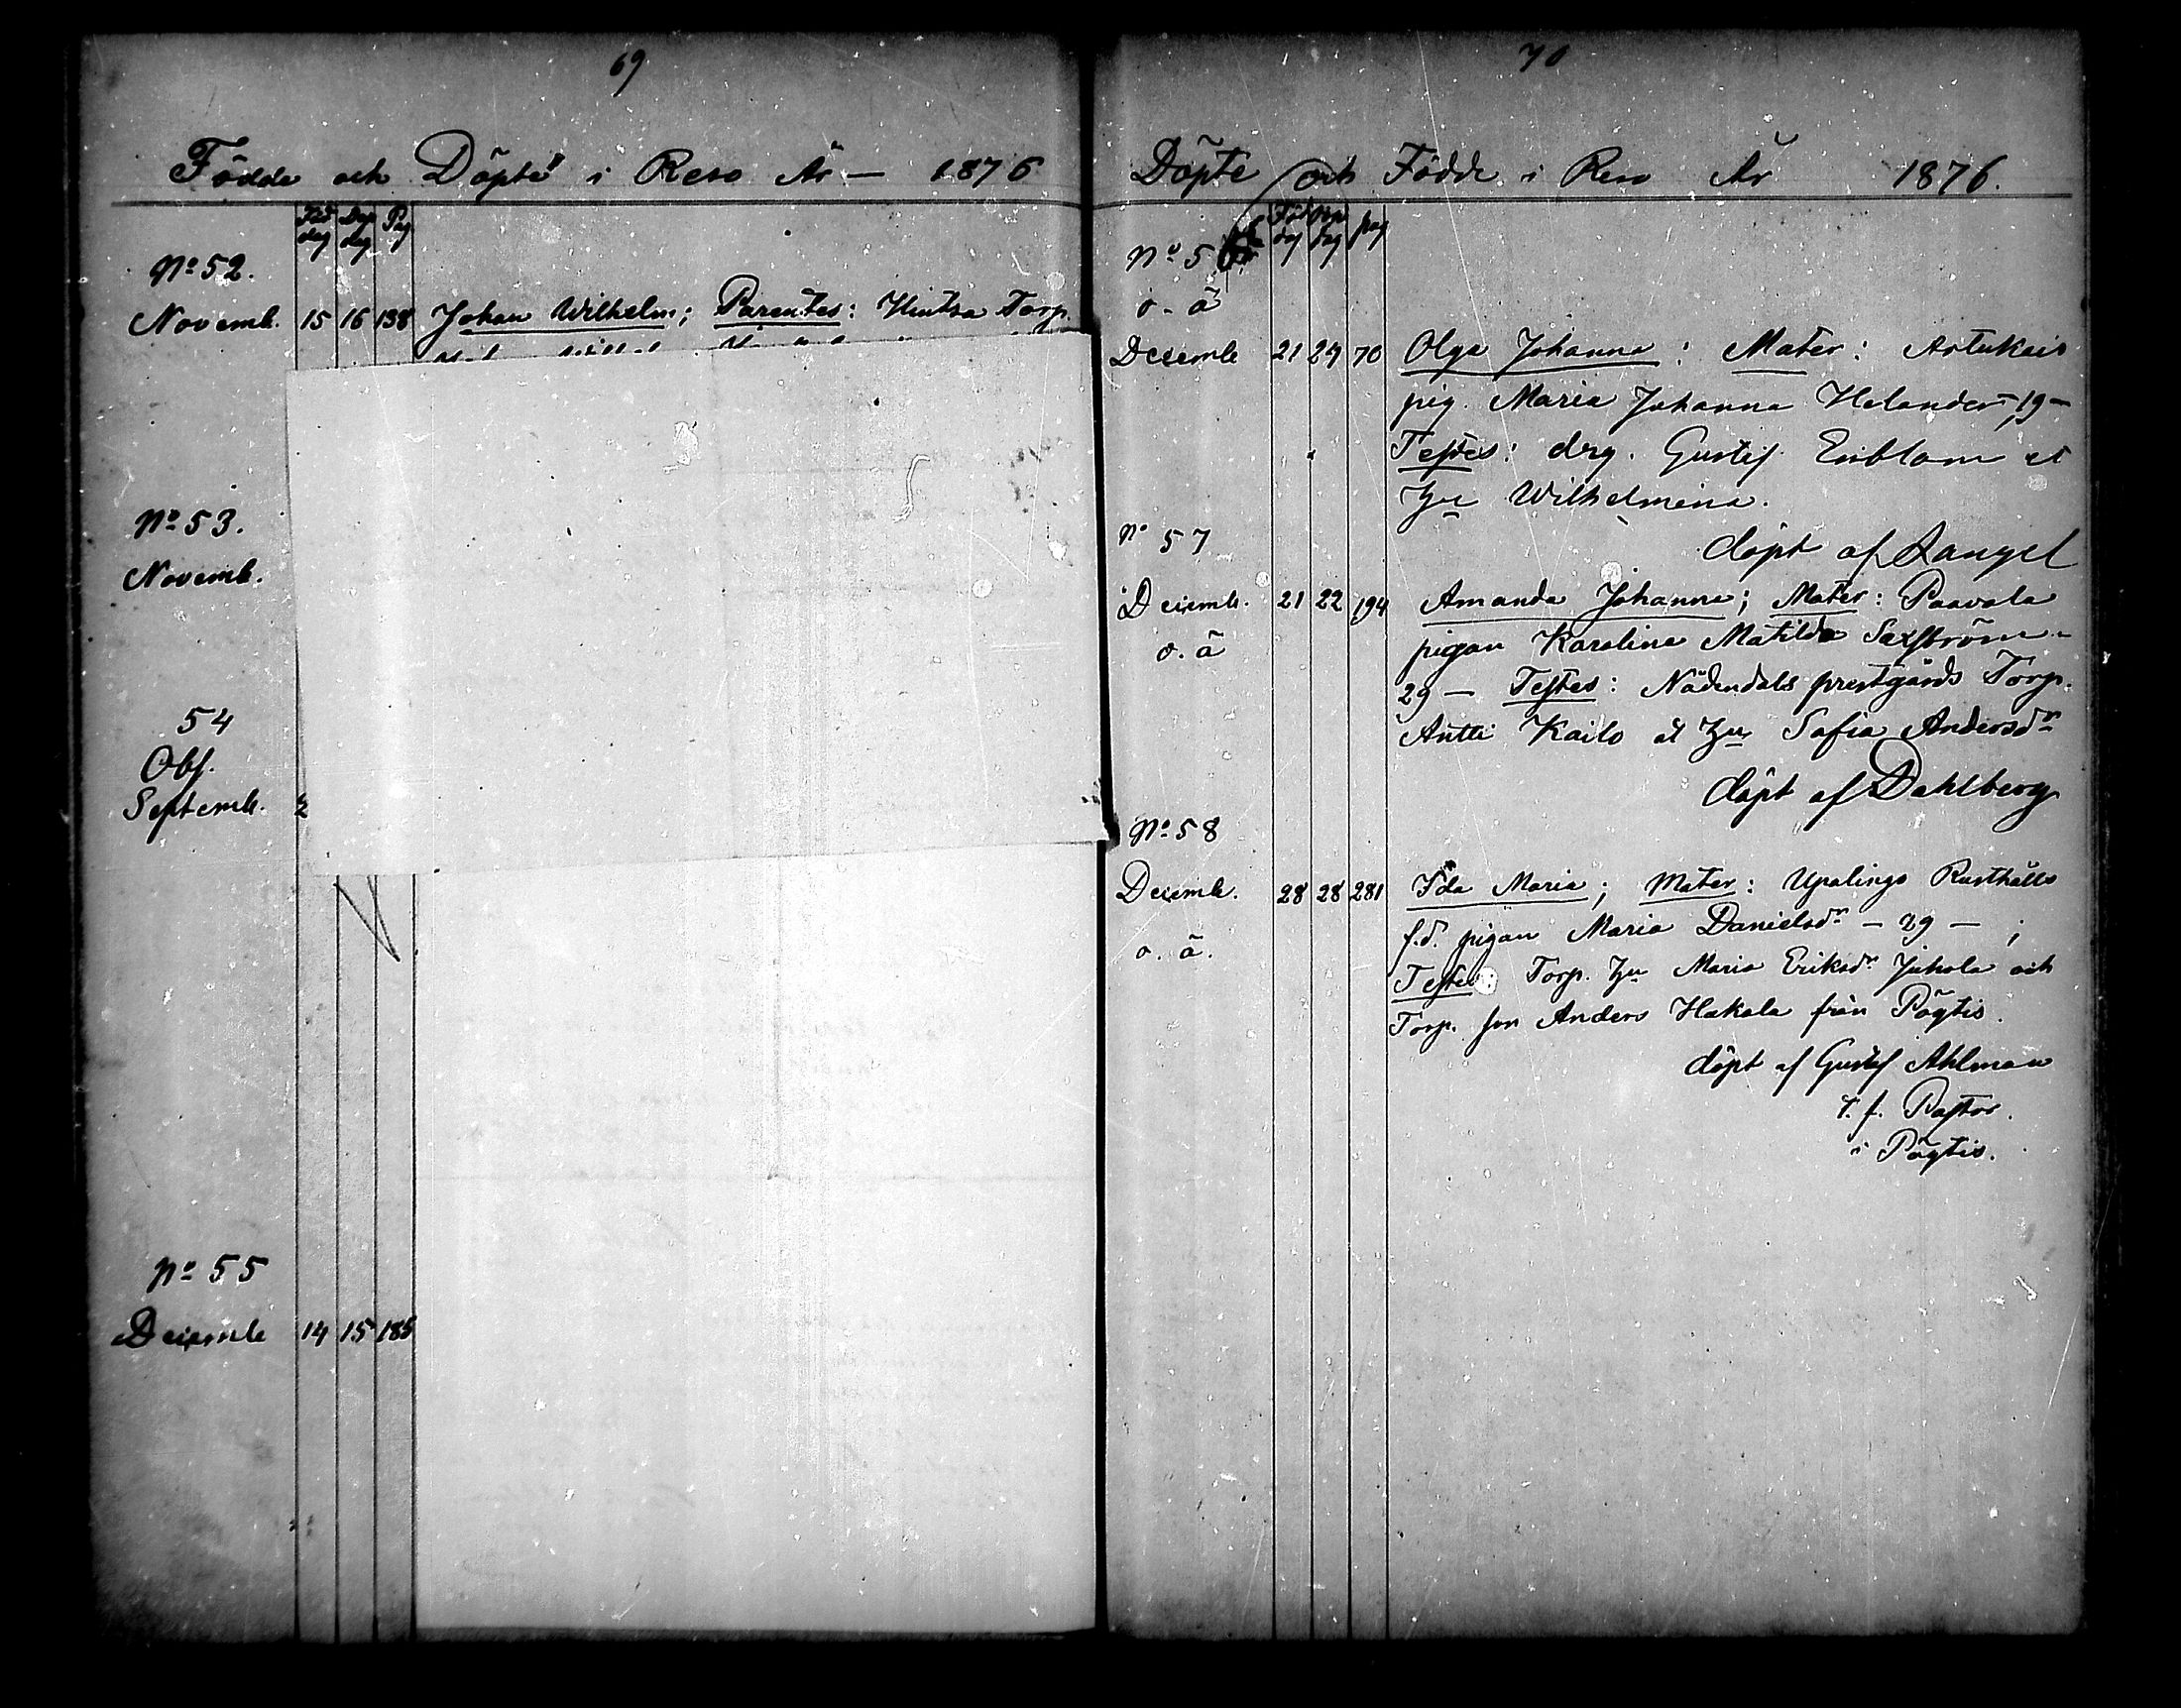 69
Födde och Döpte i Reso År — 1876
Föd dag Döp dag Pag
No 52.
Novemb. 15 16 138 Johan Wilhelm; Parentes: Hintsa Torp.
No 53.
Novemb.
54
Obs.
Septemb. 2
No 55
Decemb 14 15 185
70
Döpte och Födde i Reso År 1876.
Föd dag Döp dag pag
No 56
o. ä
Decemb 21 24 70 Olga Johanna: Mater: Artukais
pig. Maria Johanna Helander – 19 –
Testes: drg. Gustaf Enblom et
Hu Wilhelmina.
döpt af Langel
No 57
Decemb. 21 22 194 Amanda Johanna; Mater: Paavola
o. ä
pigan Karolina Matilda Saxström –
29 — Testes: Nådendals prestgårds Torp.
Antti Kailo et Hu Sofia Andersdr
döpt af Dahlberg
No 58
Decemb. 28 28 281 Ida Maria; Mater: Upalingo Rusthålls
o. ä.
f.d. pigan Maria Danielsdr – 29 – ;
Testes: Torp. Hu Maria Eriksdr Juhola och
Torp. son Anders Hakala från Pögtis.
döpt af Gustaf Ahlman
t. f. Pastor.
i Pögtis.